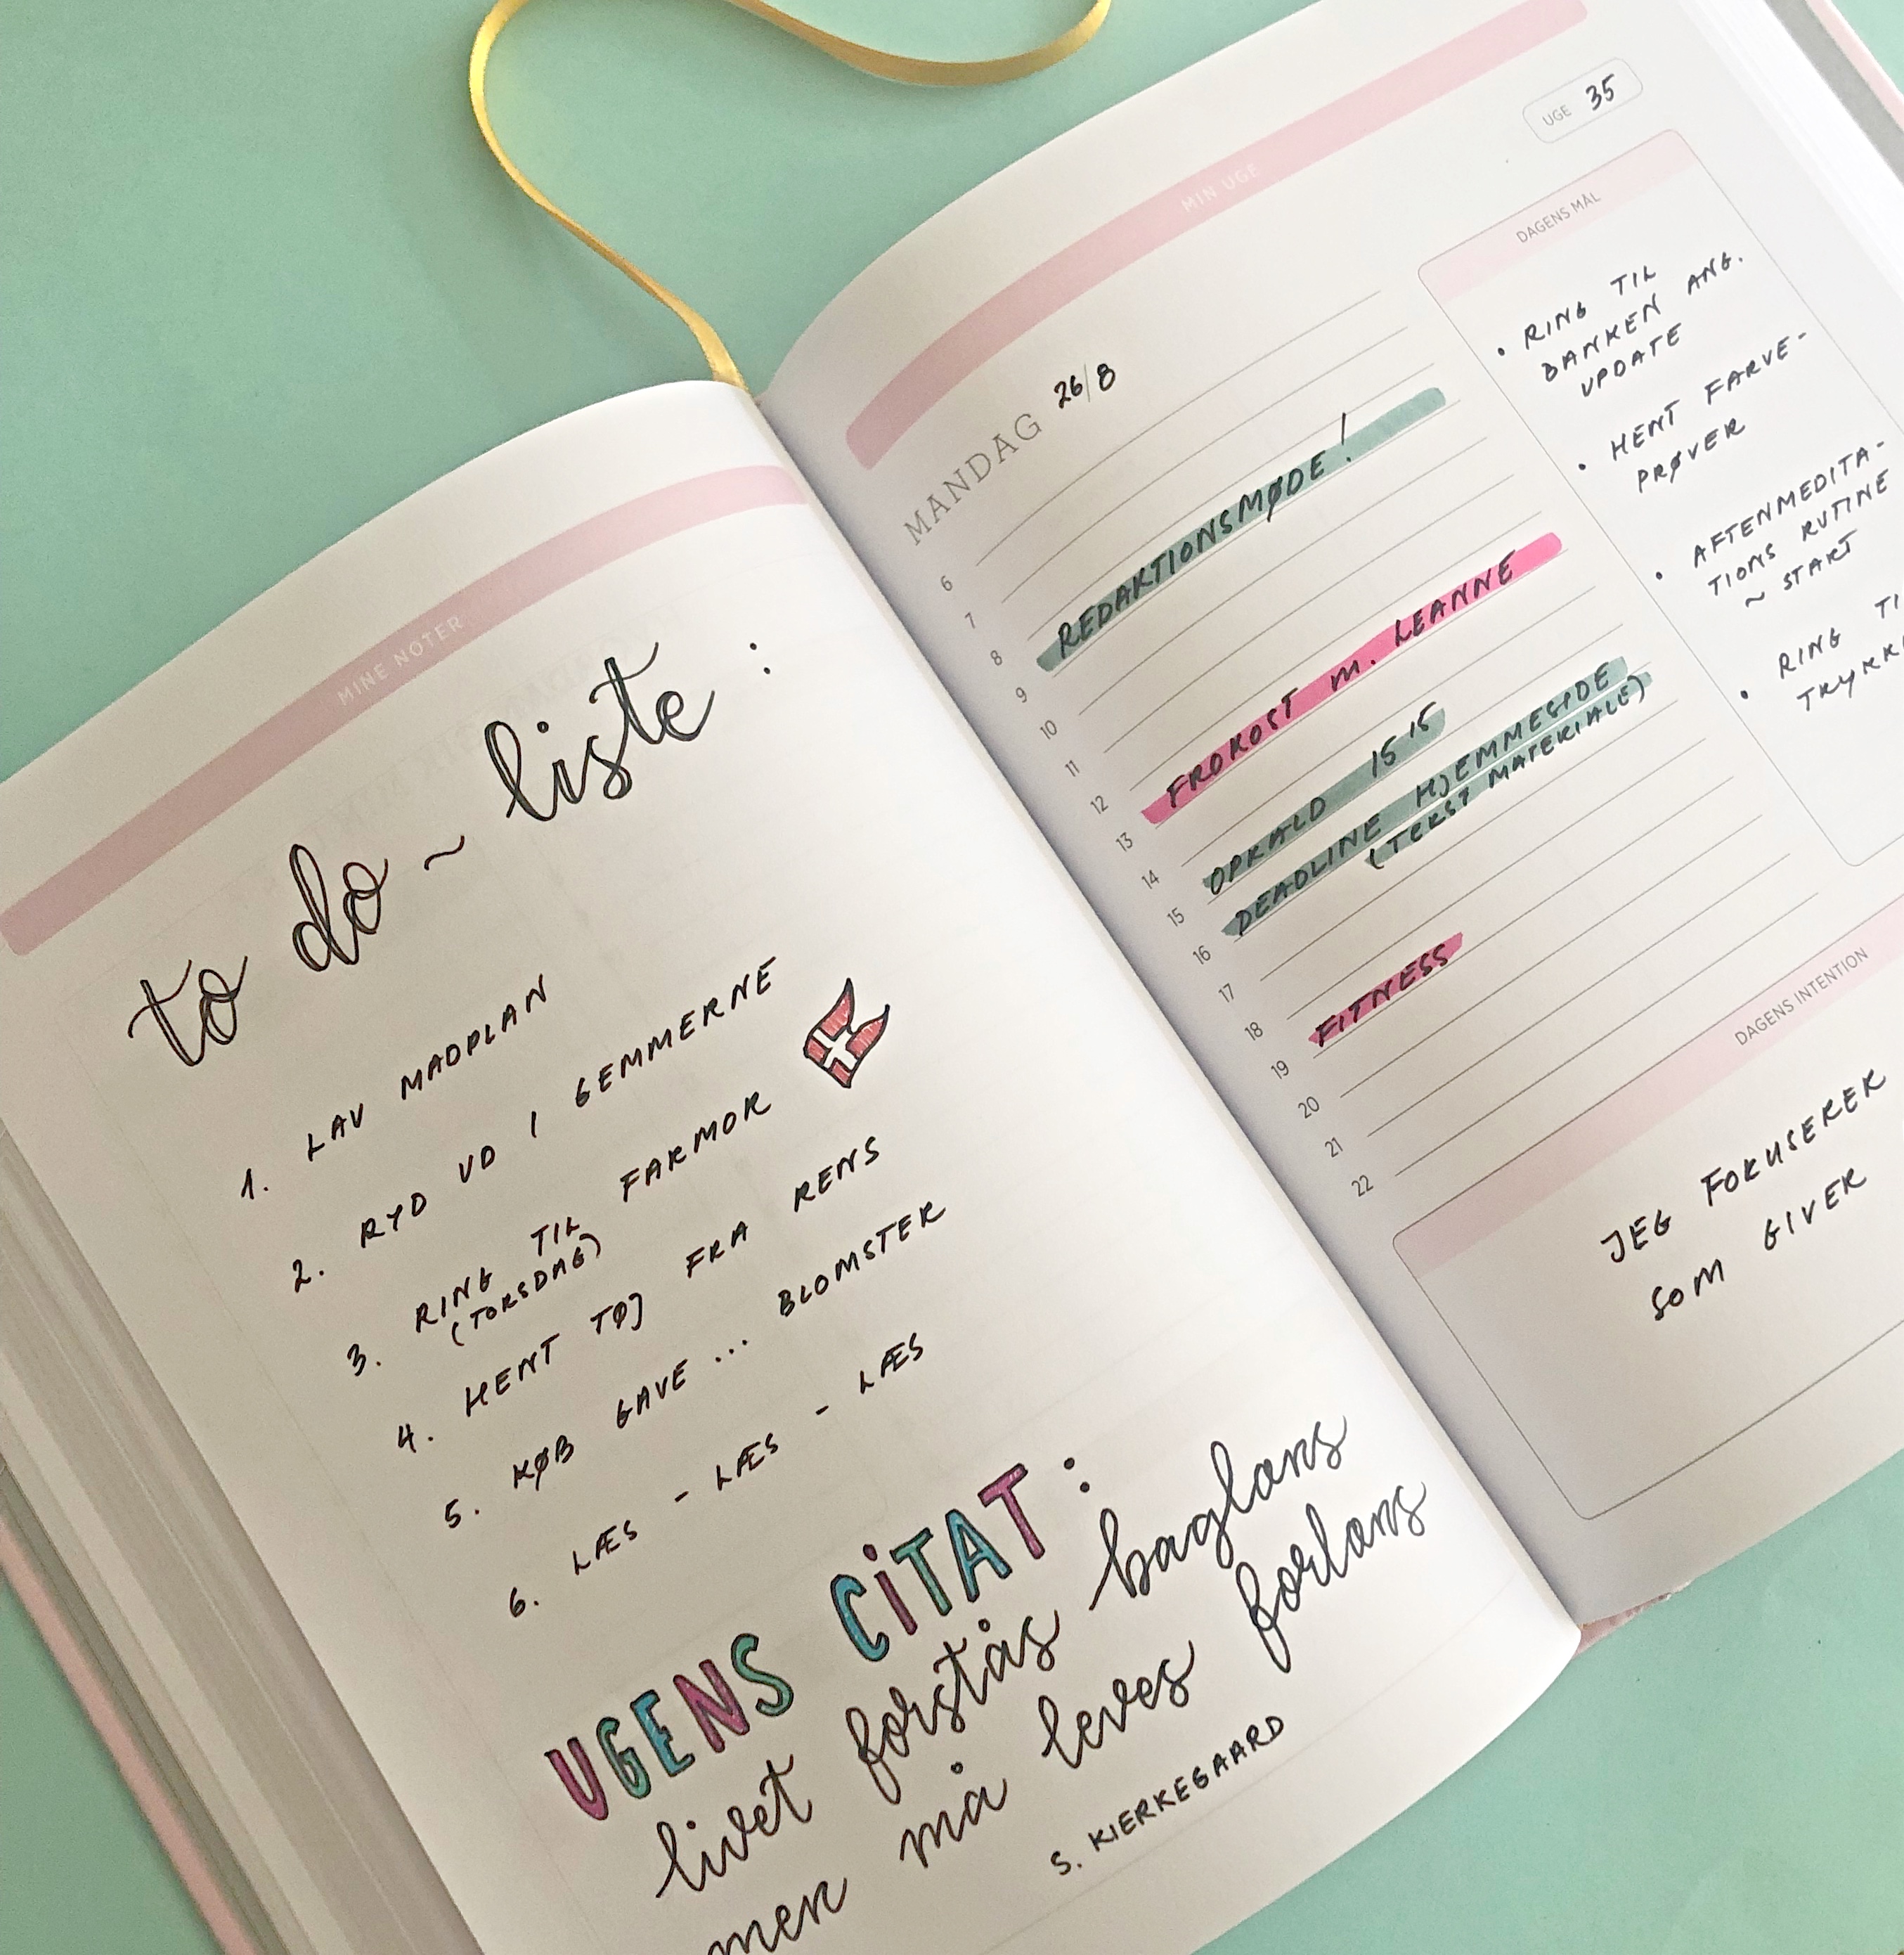 MINE NOTER
to do ~ liste :
1. LAV MADPLAN
2. RYD UD I GEMMERNE
3. RING TIL FARMOR
(TORSDAG)
4. HENT TØJ FRA RENS
5. KØB GAVE ... BLOMSTER
6. LÆS - LÆS - LÆS
UGENS CITAT :
livet forstås baglæns
men må leves forlæns
S. KIERKEGAARD
MIN UGE
UGE 35
MANDAG 26/8
6
7
8 REDAKTIONSMØDE!
9
10
11
12 FROKOST M. LEANNE
13
14 OPKALD 15 15
15 DEADLINE HJEMMESIDE
(TEKST MATERIALE)
16
17
18 FITNESS
19
20
21
22
DAGENS MÅL
• RING TIL
BANKEN ANG.
UPDATE
• HENT FARVE-
PRØVER
• AFTENMEDITA-
TIONS RUTINE
~ START
• RING
DAGENS INTENTION
JEG FOKUSERER
SOM GIVER